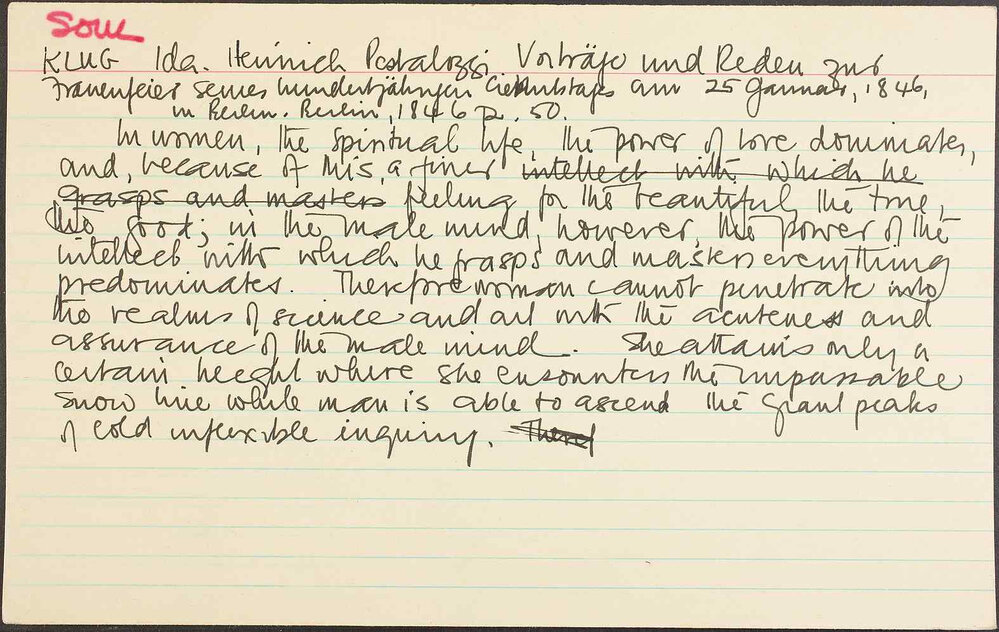 Soul
KLUG Ida. Heinrich Pestalozzi Vorträge und Reden zur
Frauenfeier seines hundertjährigen Geburtstages am 25 Januar, 1846,
in Berlin. Berlin, 1846 p. 50.
In women, the spiritual life, the power of love dominates,
and, because of this, a finer intellect with which he
grasps and masters feeling for the beautiful, the true,
the good; in the male mind, however, the power of the
intellect with which he grasps and masters everything
predominates. Therefore woman cannot penetrate into
the realms of science and art with the acuteness and
assurance of the male mind. She attains only a
certain height where she encounters the impassable
snow line while man is able to ascend the giant peaks
of cold inflexible inquiry. Theref